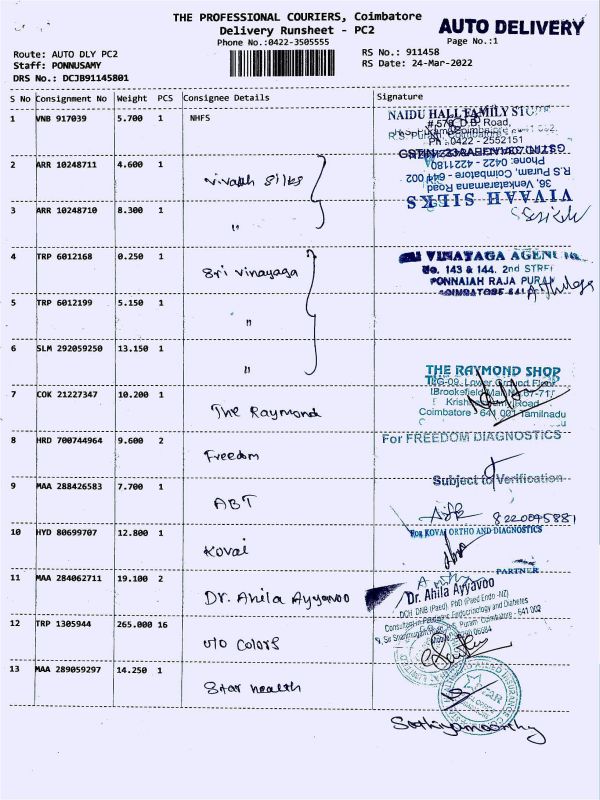 THE PROFESSIONAL COURIERS, Coimbatore
Delivery Runsheet - PC2
AUTO DELIVERY
Phone No.:0422-3505555
Page No.:1
Route: AUTO DLY PC2
Staff: PONNUSAMY
DRS No.: DCJB91145801
RS No.: 911458
RS Date: 24-Mar-2022
S No Consignment No Weight PCS Consignee Details Signature
1 VNB 917039 5.700 1 NHFS
NAIDU HALL FAMILY
Ph :0422 - 2552151
2 ARR 10248711 4.600 1 Vivaah Silks
VIVAAH SILKS
36, Venkataramana Road
R.S Puram, Coimbatore - 641 002
Phone: 0422 - 4221180
3 ARR 10248710 8.300 1 "
4 TRP 6012168 0.250 1 Sri Vinayaga
VINAYAGA
No. 143 & 144. 2nd
PONNAIAH RAJA PURAM
5 TRP 6012199 5.150 1 "
6 SLM 292059250 13.150 1 "
THE RAYMOND SHOP
Lower Ground Floor
Brookefield Mall
Road
Coimbatore - 641 001 Tamilnadu
7 COK 21227347 10.200 1 The Raymond
8 HRD 700744964 9.600 2 Freedom
For FREEDOM DIAGNOSTICS
Subject to Verification
9 MAA 288426583 7.700 1 ABT
8220045881
10 HYD 80699707 12.800 1 Kovai
For KOVAI ORTHO AND DIAGNOSTICS
PARTNER
11 MAA 284062711 19.100 2 Dr. Ahila Ayyavoo
Dr. Ahila Ayyavoo
DCH DNB (Paed), PhD (Paed Endo -NZ)
Consultant in Paediatric Endocrinology and Diabetes
12 TRP 1305944 265.000 16 U/O Colors
13 MAA 289059297 14.250 1 Star health
Sathiyamoorthy